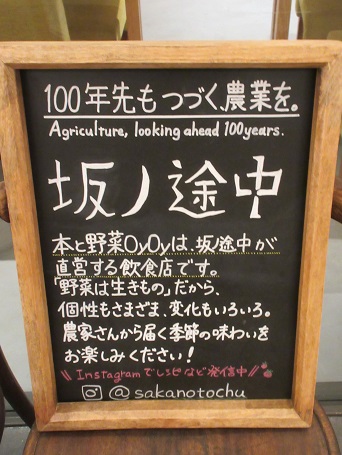 100年先もつづく、農業を。
Agriculture, looking ahead 100years.
坂ノ途中
本と野菜OyOyは、坂途中が
直営する飲食店です。
「野菜は生きもの」だから、
個性もさまざま、変化もいろいろ。
農家さんから届く季節の味わいを
お楽しみください！
\\ Instagramでレシピなど発信中 //
@sakanotochu